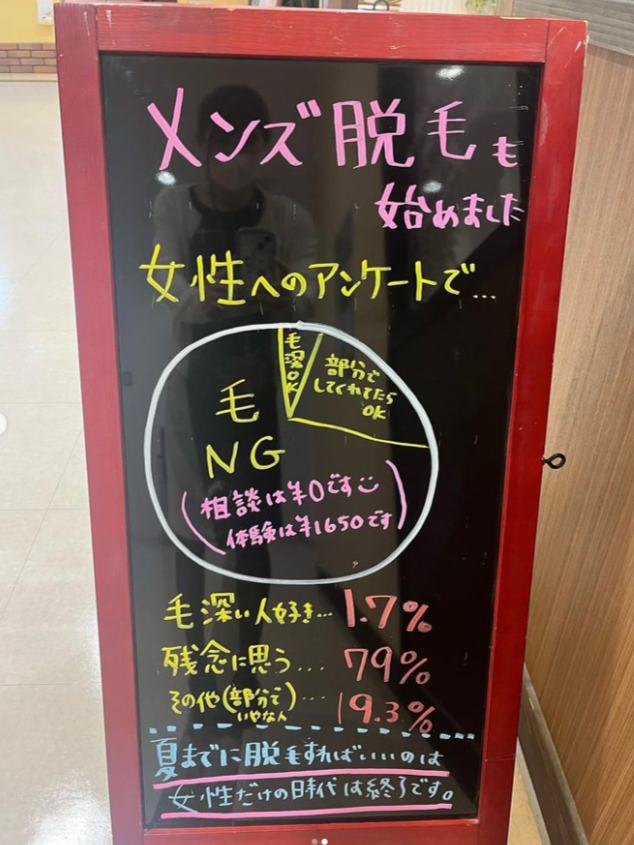 メンズ脱毛も
始めました
女性へのアンケートで…
毛深OK
部分で
してくれてたら
OK
毛
NG
(相談は¥0です
体験は¥1650です)
毛深い人好き… 1.7%
残念に思う… 79%
その他(部分で
いやな人)… 19.3%
夏までに脱毛すればいいのは
女性だけの時代は終了です。